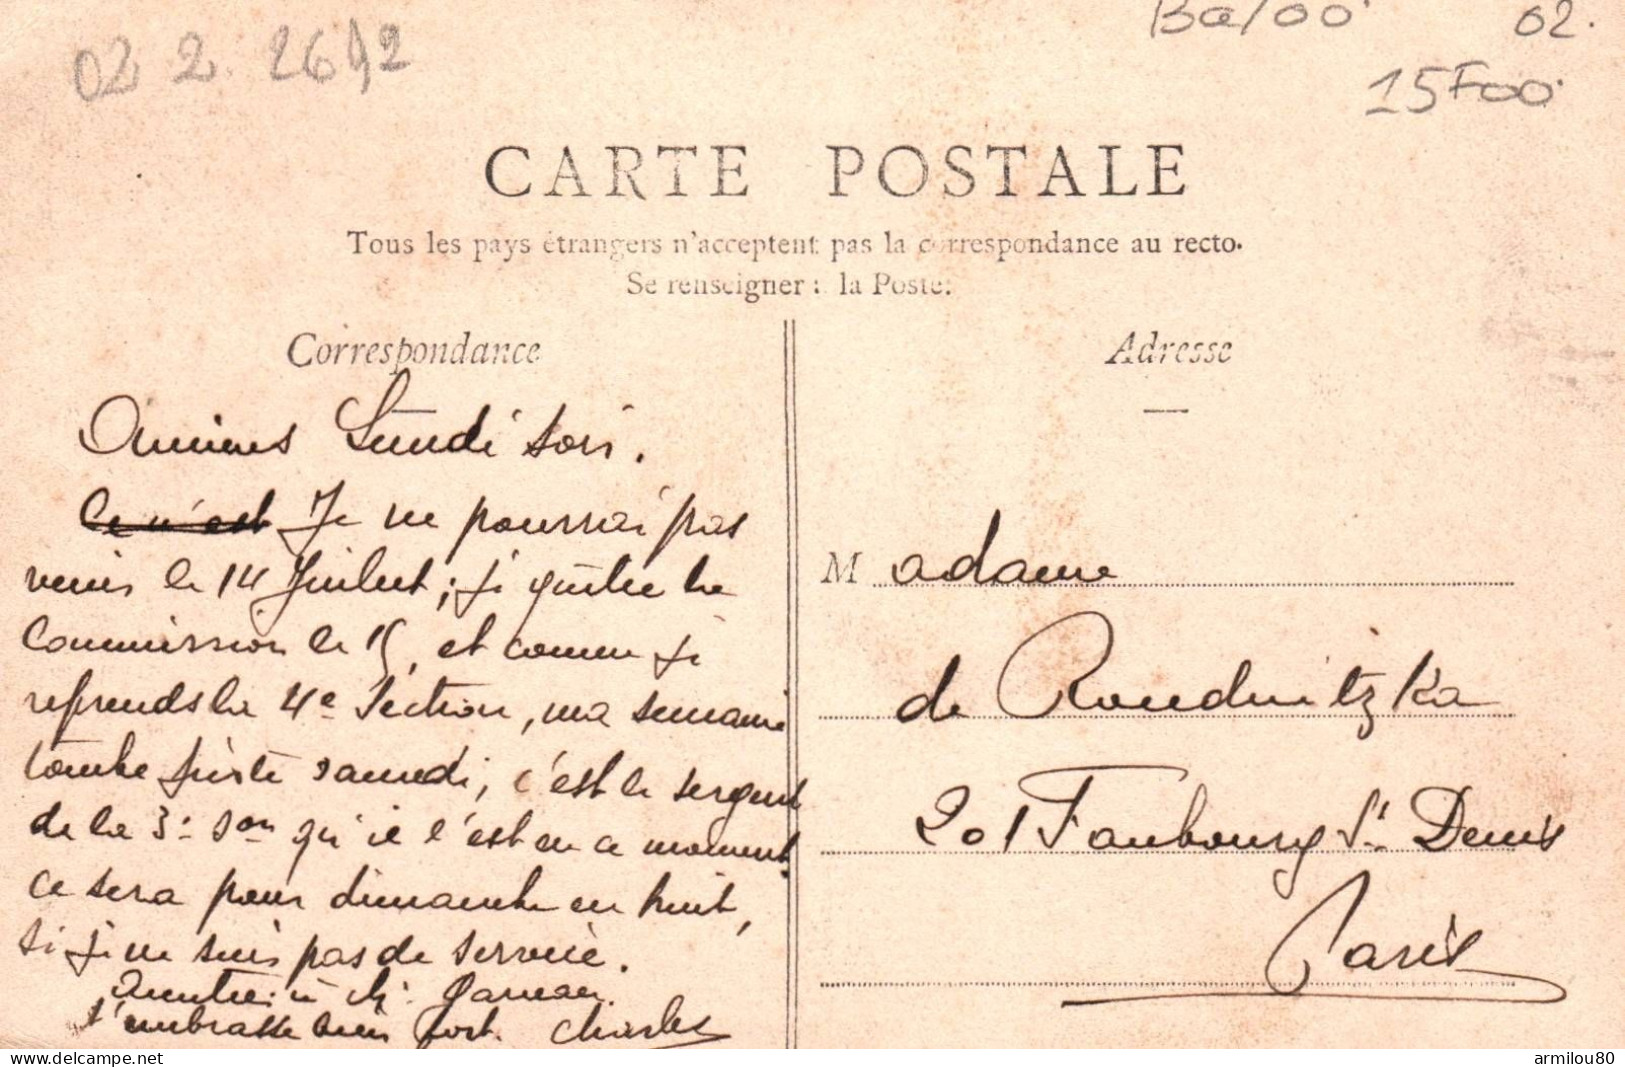 02 2. 2612
Ba/00
02.
15F00
CARTE POSTALE
Tous les pays étrangers n'acceptent pas la correspondance au recto.
Se renseigner à la Poste.
Correspondance
Amiens Lundi soir.
Ce n'est Je ne pourrai pas
venir le 14 Juillet ; je quitte la
Commission le 15, et comme je
reprends la 4e Section, ma semaine
tombe juste samedi, c'est le sergent
de la 3e Son qui l'est en ce moment
ce sera pour dimanche en huit,
si je ne suis pas de service.
t'embrasse bien fort. Charles
Adresse
Madame
de Roudnitzka
201 Faubourg St Denis
Paris
www.delcampe.net
armilou80